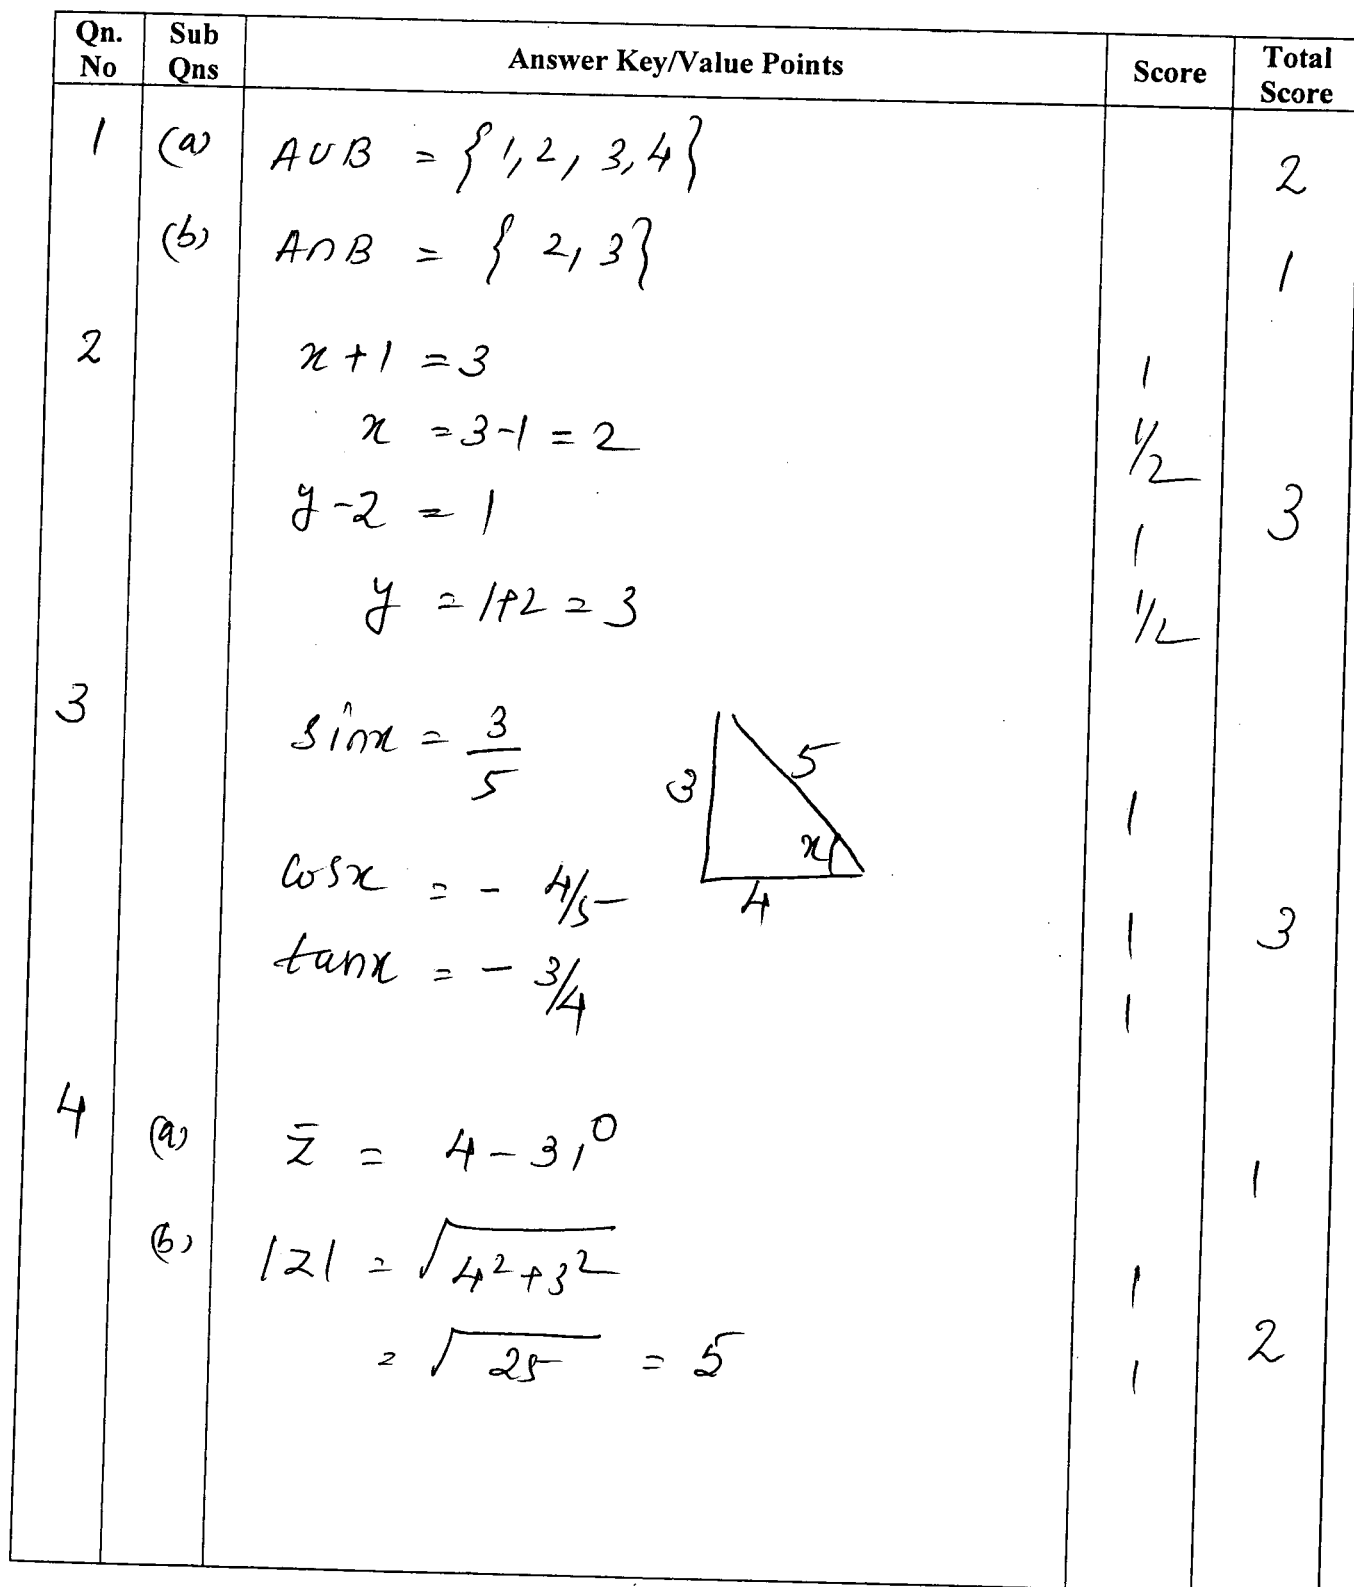 Qn. No Sub Qns Answer Key/Value Points Score Total Score
1 (a) A∪B = {1, 2, 3, 4} 2
(b) A∩B = {2, 3} 1
2 x+1 = 3 1
x = 3-1 = 2 1/2
y-2 = 1 1
y = 1+2 = 3 1/2
3
3 sinx = 3/5 1
3 5 x 4
cosx = - 4/5 1
3
tanx = - 3/4 1
4 (a) z̄ = 4 - 3i 1
(b) |z| = √(4²+3²) 1
= √25 = 5 1
2